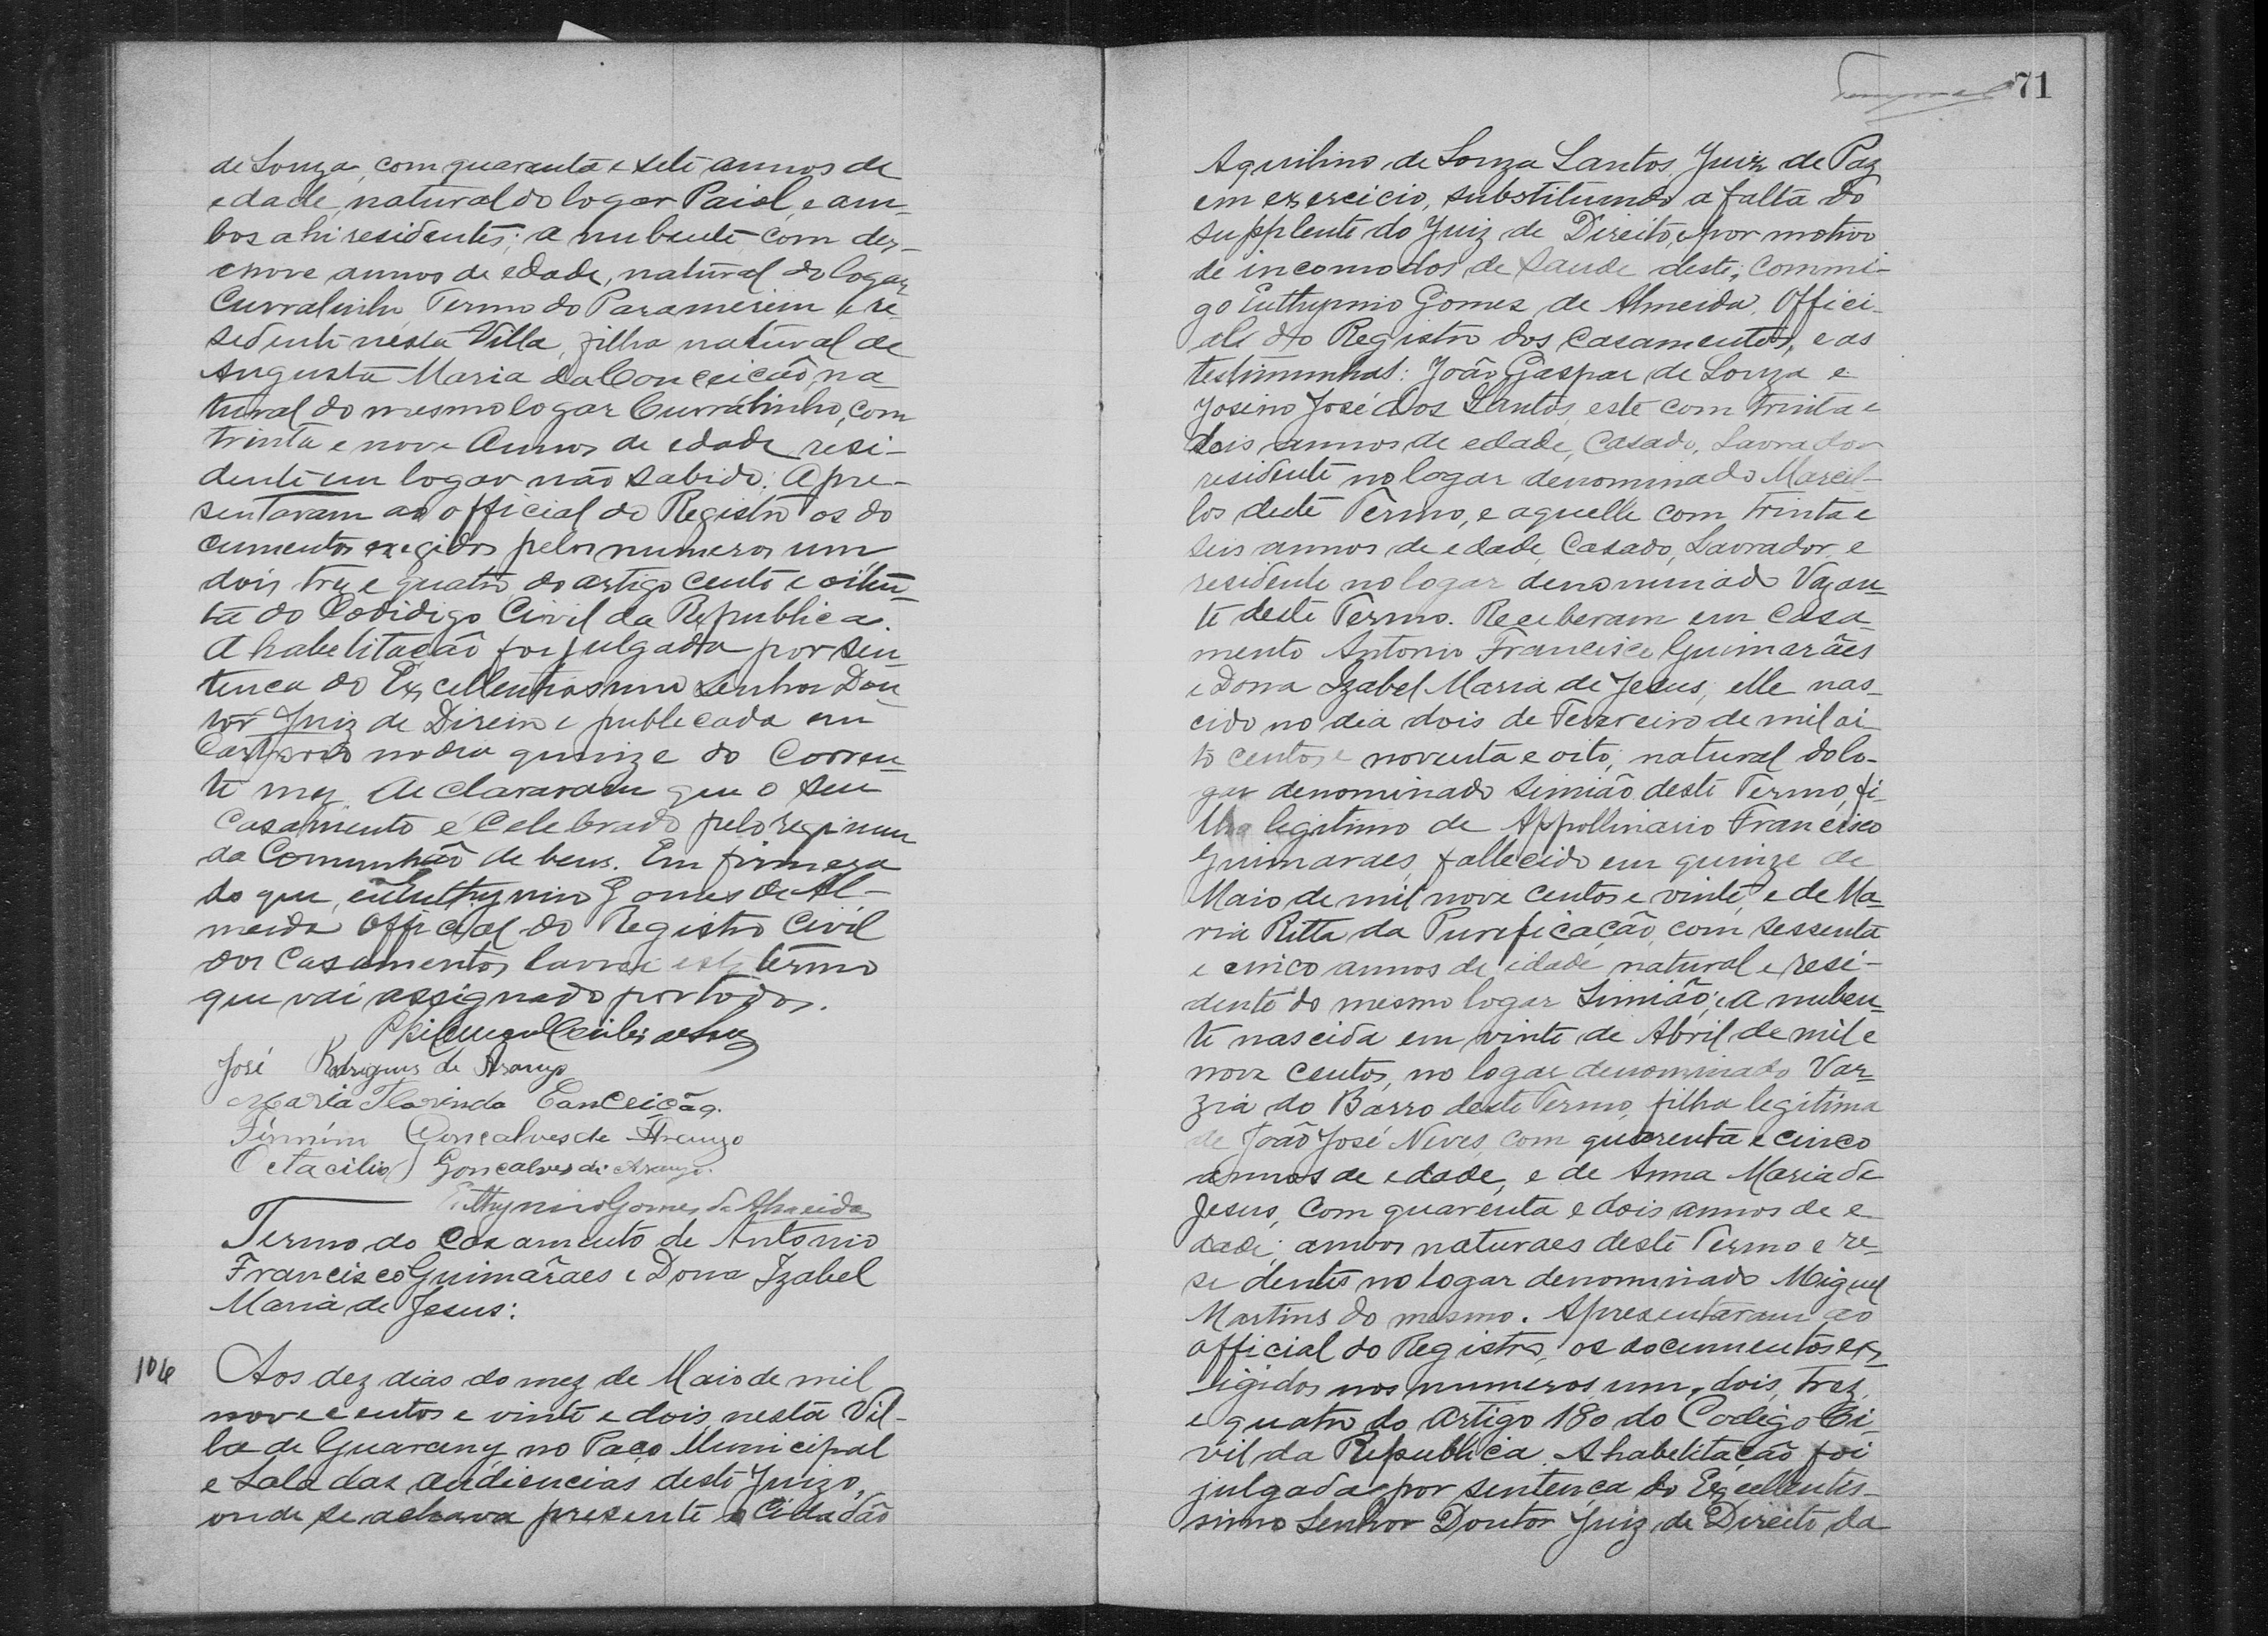 de Souza, com quarenta e sete annos de
edade, natural do logar Paiol, e am-
bos ahi residentes; a nubente com des-
enove annos de edade, natural do logar
Curralinho Termo do Paramerim e re-
sidente nesta Villa, filha natural de
Augusta Maria da Conceicão, na-
tural do mesmo logar Curralinho, com
trinta e nove annos de edade resi-
dente em logar não sabido. Apre-
sentaram ao official do Registro os do
cumentos exegidos pelos numeros um,
dois, tres e quatro do artigo cento e oiten-
ta do Codidigo Civil da Republica.
A habelitacão foi julgada por sen-
tenca do Excellentissimo Senhor Dou
tor Juiz de Direito e publicada em
Cartorio no dia quinze do Corren-
te mez. Declararam que o seu
Casamento é Celebrado pelo regimen
da Comunhão de bens. Em firmeza
do que, eu Euthymio Gomes de Al-
meida Official do Registro Civil
dos Casamentos lavrei este termo
que vai assignado por todos.
José Rodrigues de Araujo
Maria Florinda Conceição.
Firmino Goncalves de Araujo
Octacilio Goncalves de Araujo.
Euthymio Gomes de Almeida
Termo do Casamento de Antonio
Francisco Guimarães e Dona Izabel
Maria de Jesus:
106 Aos dez dias do mez de Maio de mil
nove centos e vinte e dois, nesta Vil-
la de Guarany, no Paço Municipal
e Sala das audiencias deste Juizo,
onde se achava presente o Cidadão
71
Aquilino de Souza Santos, Juiz de Paz
em exercicio, substituindo a falta do
supplente do Juiz de Direito, e por motivo
de incomodos de saude deste, Commi-
go Euthymio Gomes de Almeida, Offici-
al do Registro dos Casamentos, e as
testimunhas: João Gaspar de Souza e
Josino José dos Santos, este com trinta e
dois annos de edade, Casado, Lavrador
residente no logar denominado Marcel-
los deste Termo, e aquelle com trinta e
seis annos de edade, Casado, Lavrador, e
residente no logar denominado Vazan-
te deste Termo. Receberam em Casa-
mento Antonio Francisco Guimarães
e Dona Izabel Maria de Jesus; elle nas-
cido no dia dois de Fevereiro de mil oi
to centos e noventa e oito, natural do lo-
gar denominado Simião deste Termo, fi-
lho legitimo de Appollinario Francisco
Guimaraes, fallecido em quinze de
Maio de mil nove centos e vinte, e de Ma-
ria Ritta da Purificacão, com sessenta
e cinco annos de idade, natural e resi-
dente do mesmo logar Simião; a nuben-
te nascida em vinte de Abril de mil e
nove centos, no logar denominado Var-
zia do Barro deste Termo, filha legitima
de João José Neves, com quarenta e cinco
annos de edade, e de Anna Maria de
Jesus, Com quarenta e dois annos de e
dade; ambos naturaes deste Termo e re-
sidentes no logar denominado Miguel
Martins do mesmo. Apresentaram ao
official do Registro, os documentos ex-
igidos nos numeros um, dois, trez,
e quatro do artigo 180 do Codigo Ci-
vil da Republica. A habelitação foi
julgada por sentença do Excellentes-
simo Senhor Doutor Juiz de Direito da